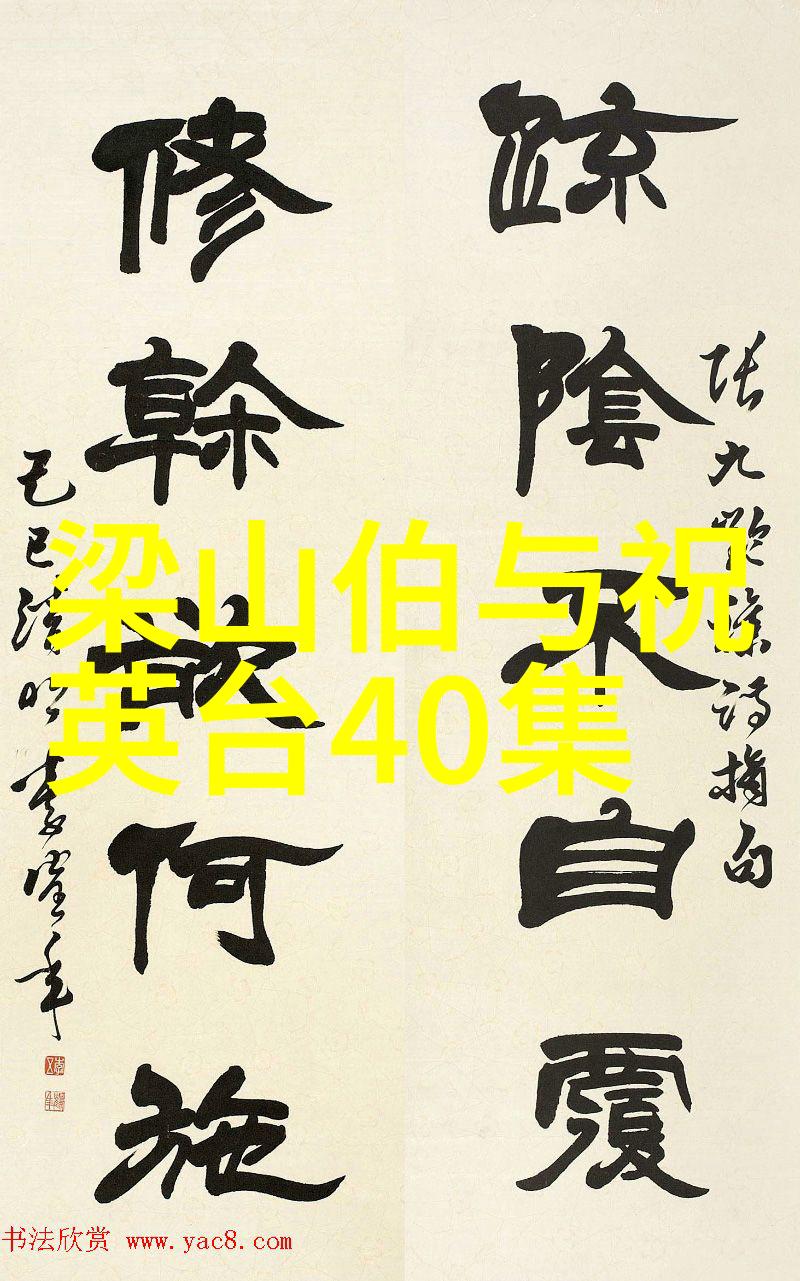 張九齡雜詩摘句
疎陰不自覆
修榦欲何施
己巳清明
梁山伯与祝
英台40集
书法欣赏 www.yac8.com